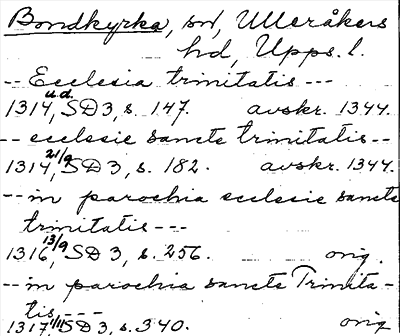 Bondkyrka, sn, Ulleråkers
hd, Upps. l.
-- Ecclesia trinitatis ---
1314 u.d., SD 3, s. 147. avskr. 1344.
-- ecclesie sancte trinitatis --
1314 21/9, SD 3, s. 182. avskr. 1344.
-- in parochia ecclesie sancte
trinitatis ---
1316 13/9, SD 3, s. 256. orig.
-- in parochia sancte Trinita-
tis, ---
1317 1/11 SD 3, s. 340. orig